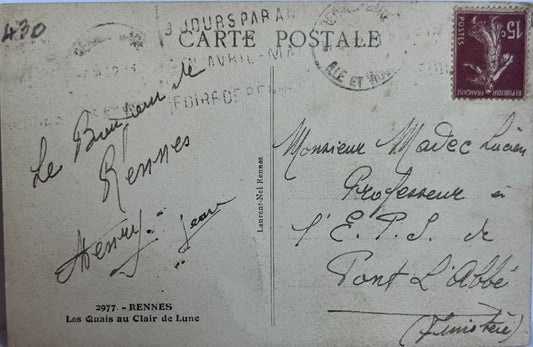 430
3 JOURS PAR AN
CARTE POSTALE
AVRIL - MA
FOIRE DE RENN
ILLE ET
15c
POSTES
REPUBLIQUE FRANÇAISE
Le Bonjour de
Rennes
Henry. Jean
Laurent-Nel Rennes
Monsieur Madec Lucien
Professeur à
l'E.P.S. de
Pont L'Abbé
(Finistère)
2977. - RENNES
Les Quais au Clair de Lune